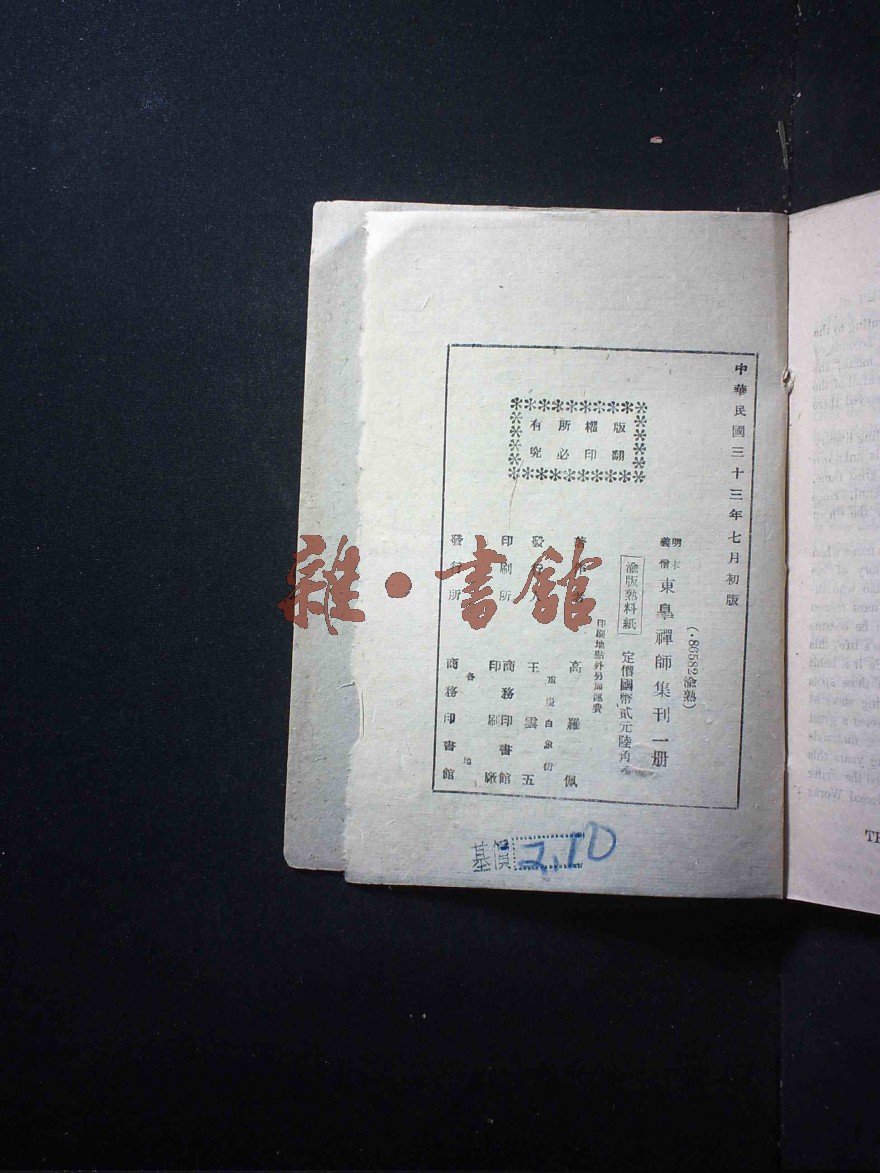 中華民國三十三年七月初版
版權所有
翻印必究
(·86582渝熟)
明末
義僧
東臯禪師集刊一册
渝版熟料紙
定價國幣貳元陸角
印刷地點外另加運費
高羅佩
發行人
重慶白象街
王雲五
印刷所
商務印書館
印刷廠
發行所
各地
商務印書館
雜·書館
基價 2.10